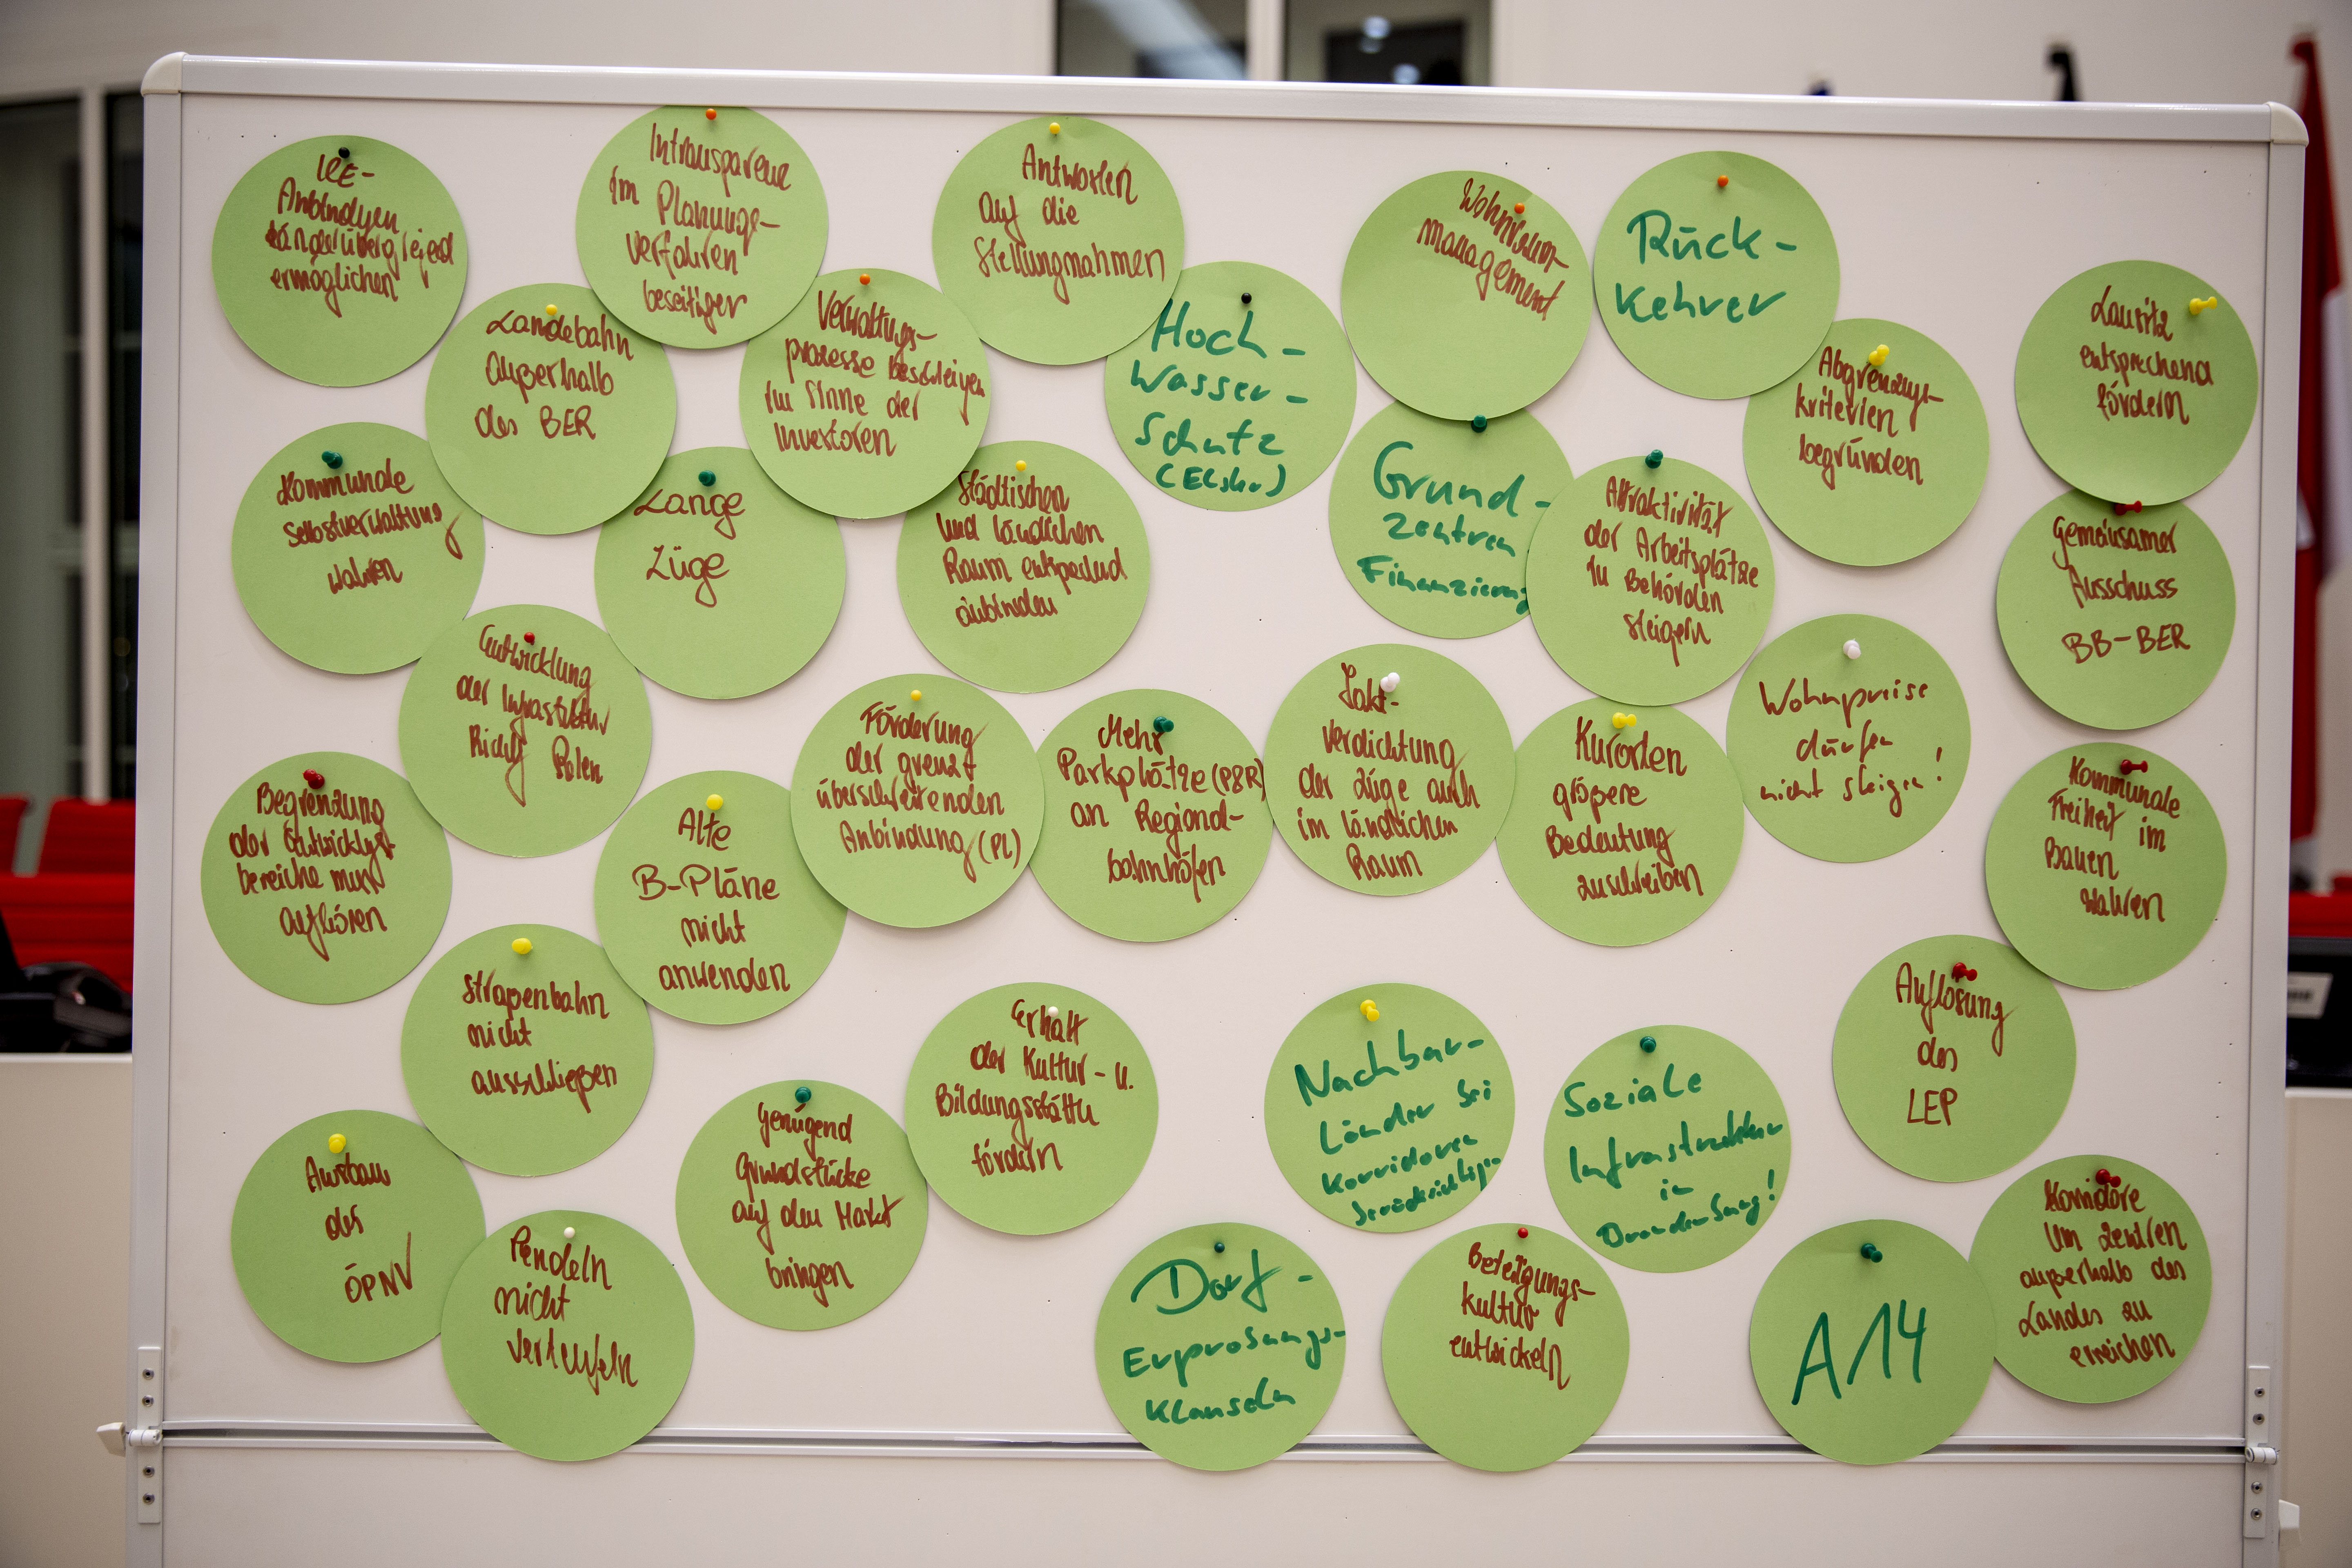 ICE-
Anbindungen
länderübergreifend
ermöglichen
Intransparenz
im Planungs-
verfahren
beseitigen
Antworten
auf die
Stellungnahmen
Wohnraum-
management
Rück-
kehrer
Lausitz
entsprechend
fördern
Landebahn
außerhalb
des BER
Verwaltungs-
prozesse beschleunigen
im Sinne der
Investoren
Hoch-
wasser-
schutz
(Elster)
Abgrenzungs-
kriterien
begründen
Kommunale
Selbstverwaltung
wahren
Lange
Züge
Städtischen
und ländlichen
Raum entsprechend
anbinden
Grund-
zentren
Finanzierung
Attraktivität
der Arbeitsplätze
in Behörden
steigern
Gemeinsamer
Ausschuss
BB-BER
Entwicklung
der Infrastruktur
Richtg Polen
Förderung
der grenz
überschreitenden
Anbindung (PL)
Mehr
Parkplätze (P&R)
an Regional-
bahnhöfen
Takt-
verdichtung
der Züge auch
im ländlichen
Raum
Kurorten
größere
Bedeutung
zuschreiben
Wohnpreise
dürfen
nicht steigen!
Kommunale
Freiheit im
Bauen
wahren
Begrenzung
der Entwicklgs-
bereiche muss
aufhören
Alte
B-Pläne
nicht
anwenden
Straßenbahn
nicht
ausschließen
Erhalt
der Kultur- u.
Bildungsstätten
fördern
Nachbar-
länder bei
Korridoren
berücksichtigen
Soziale
Infrastruktur
in
Brandenburg!
Auflösung
des
LEP
Ausbau
des
ÖPNV
Pendeln
nicht
verteufeln
Genügend
Grundstücke
auf den Markt
bringen
Dorf-
Erprobungs-
klauseln
Beteiligungs-
kultur
entwickeln
A14
Korridore
um Zentren
außerhalb des
Landes zu
erreichen